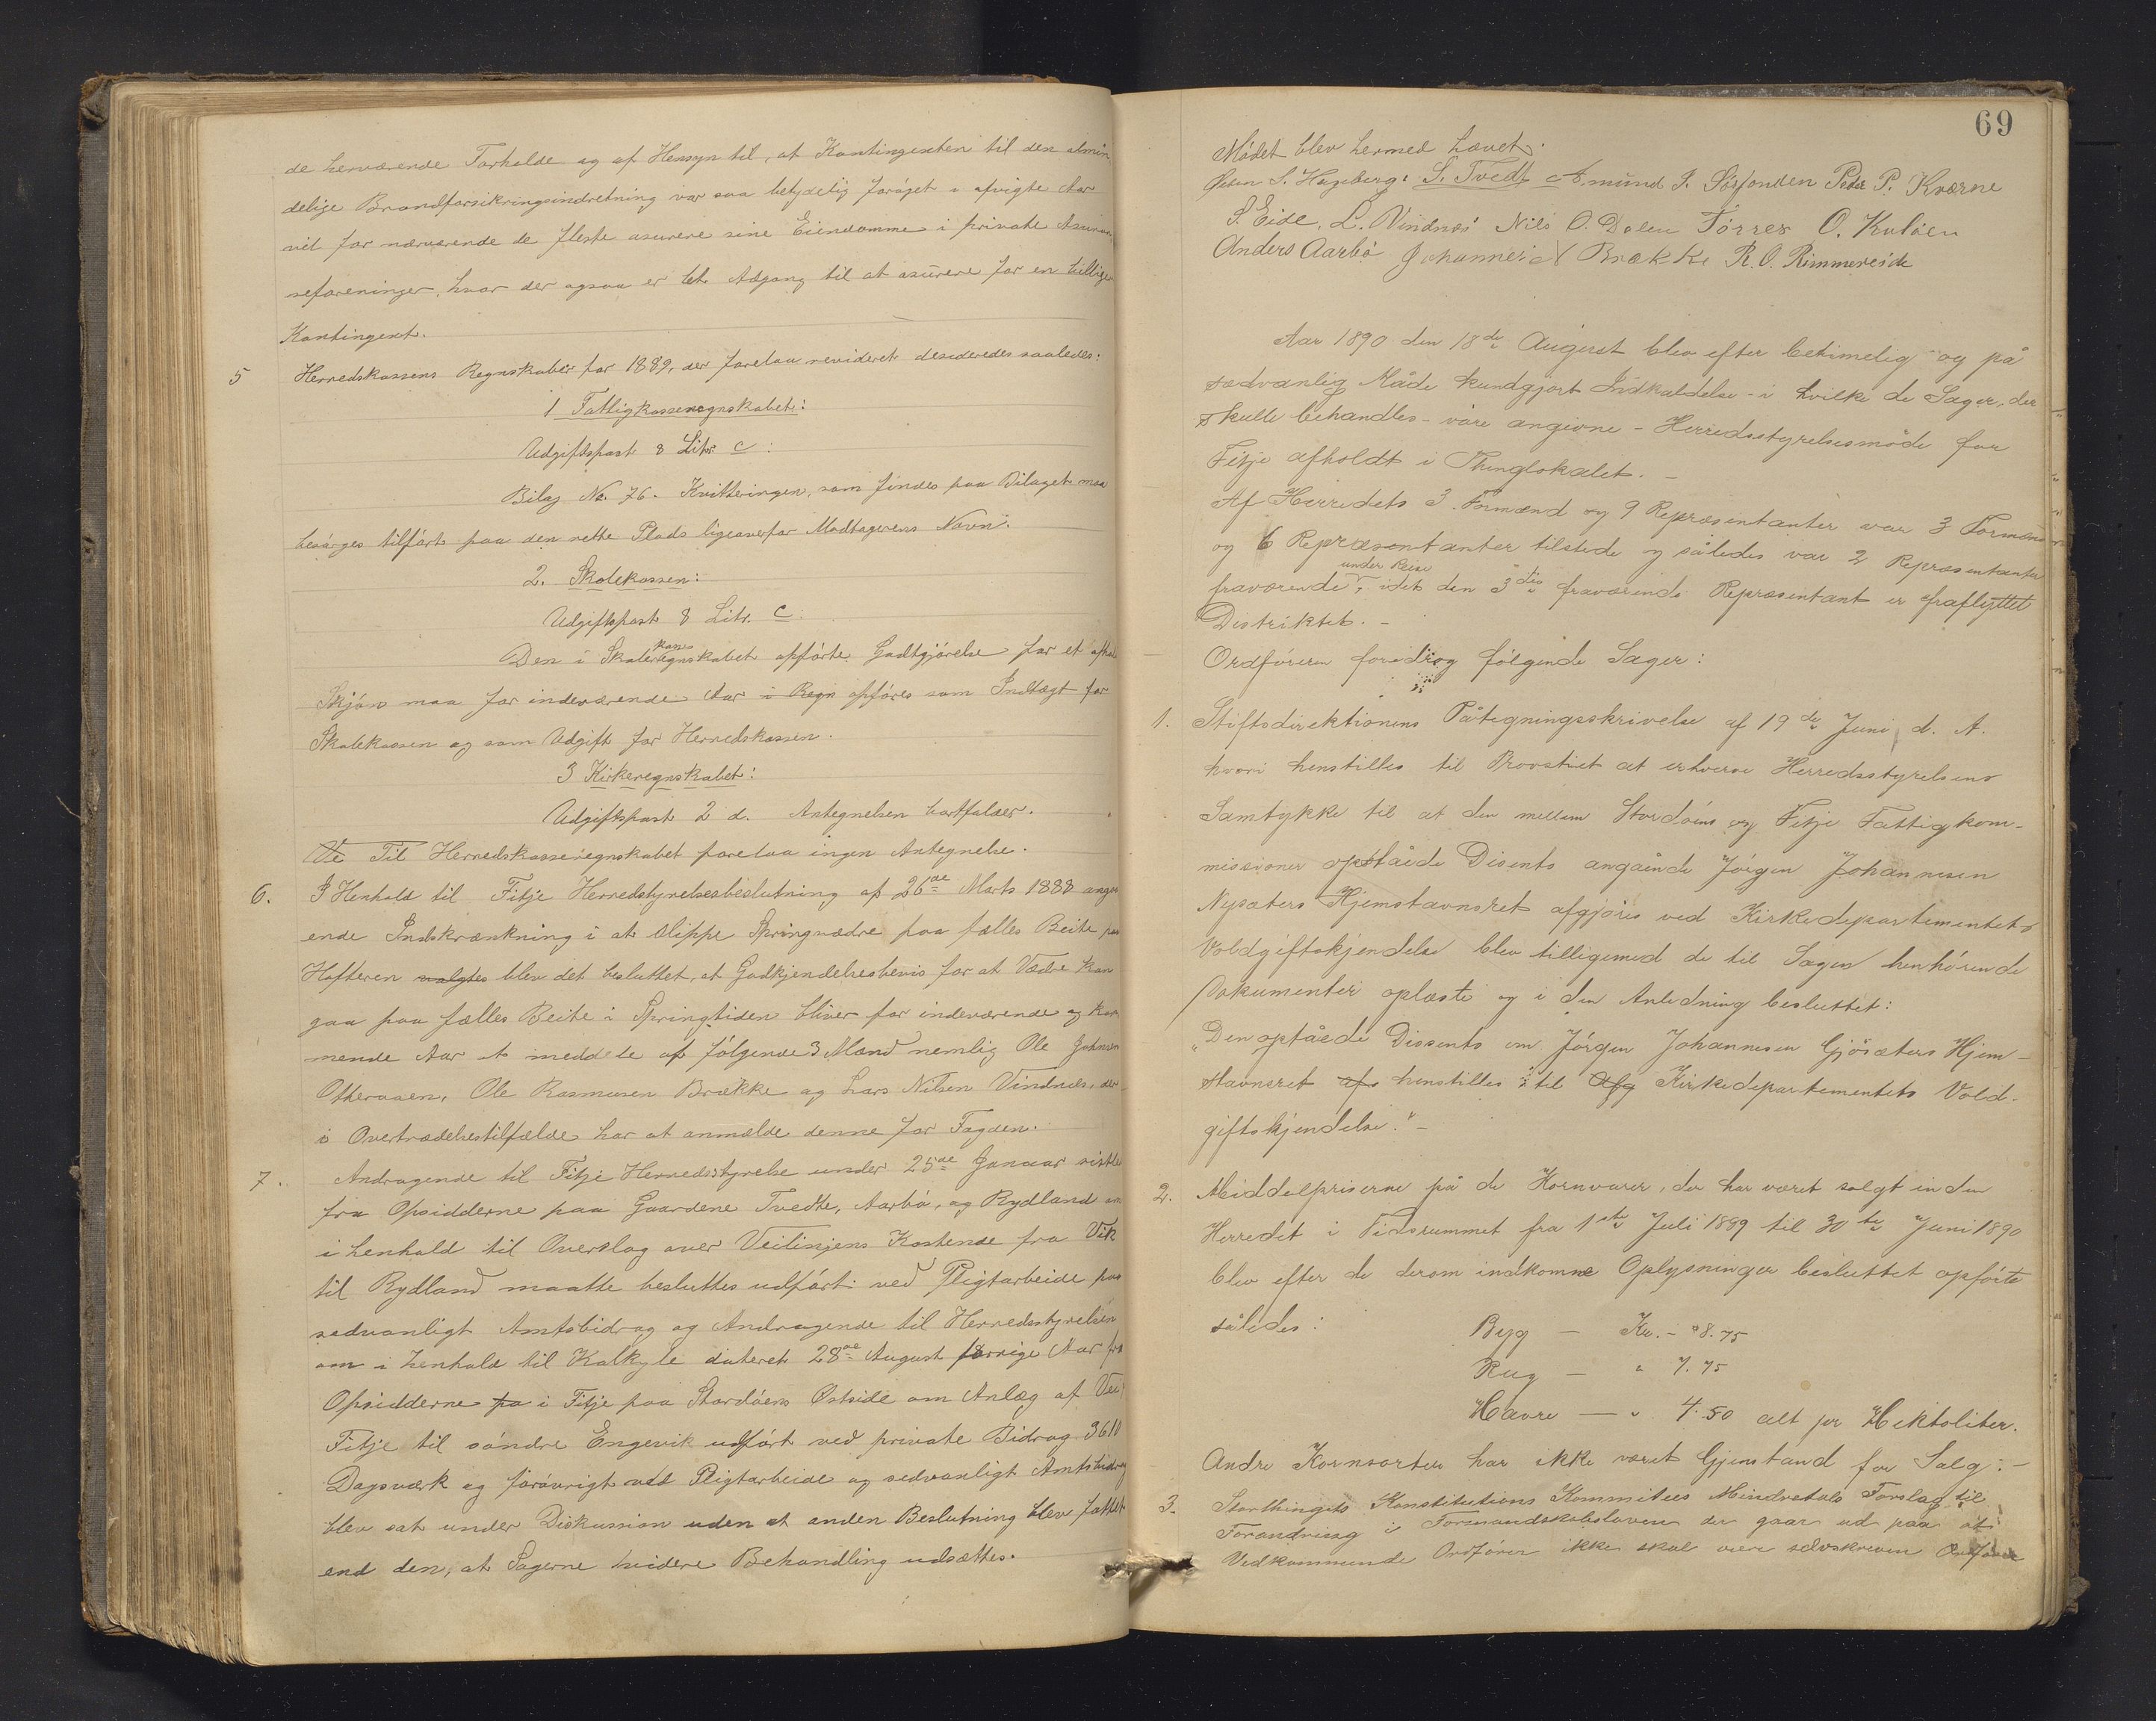 de herværende Forholde og af Hensyn til, at Kontingenten til den almin
delige Brandforsikringsindretning var saa betydelig forøget i afvigte Aar
vil for nærværende de fleste asurere sine Eiendomme i private Asuran
seforeninger, hvor der ogsaa er let Adgang til at asurere for en billiger
Kontingent.
5 Herredskassens Regnskaber for 1889, der forelaa revideret desideredes saaledes:
1 Fattigkasseregnskabet:
Udgiftspost 8 Litr. c:
Bilag No. 76. Kvitteringen, som findes paa Bilaget maa
besørges tilført paa den rette Plads ligeoverfor Modtagerens Navn.
2. Skolekassen:
Udgiftspost 8 Litr. c.
Den i Skolekasseregnskabet opførte Godtgjørelse for et afholdt
Skjøn maa for indeværende Aar i Regn opføres som Indtægt for
Skolekassen og som Udgift for Herredskassen.
3 Kirkeregnskabet:
Udgiftspost 2 d. Antegnelsen bortfalder.
Ve Til Herredskasseregnskabet forelaa ingen Antegnelse.
6. I Henhold til Fitje Herredstyrelsesbeslutning af 26de Marts 1888 angaa
ende Indskrænkning i at slippe Springvædre paa fælles Beite paa
Høsteren valgtes blev det besluttet, at Godkjendelsesbevis for at Vædre kan
gaa paa fælles Beite i Springtiden bliver for indeværende og kom
mende Aar at meddele af følgende 3 Mænd nemlig Ole Johnsen
Otheraaen, Ole Rasmusen Brække og Lars Nilsen Vindnes, der
i Overtrædelsestilfælde har at anmælde denne for Fogden.
7. Andragende til Fitje Herredsstyrelse under 25de Januar sistle
fra Opsidderne paa Gaardene Tvedte, Aarbø, og Rydland om
i henhold til Overslag over Veilinjens Kostende fra Vik
til Rydland maatte besluttes udført ved Pligtarbeide paa
sedvanligt Amtsbidrag og Andragende til Herredsstyrelsen
om i henhold til Kalkyle dateret 28de August forrige Aar fra
Opsidderne pa i Fitje paa Stordøens Østside om Anlæg af Vei
Fitje til søndre Engevik udført ved private Bidrag 3610
Dagsværk og forøvrigt ved Pligtarbeide og sedvanligt Amtsbidrag
blev sat under Diskussion uden at anden Beslutning blev fattet
end den, at Sagerne videre Behandling udsættes.
69
Mødet blev hermed hævet.
S. Hageberg. S. Tvedt Amund J. Sørfonden Peder P. Kværne
S. Eide, L. Vindnæs Nils O. Dalen Tørres O. Kuløen
Anders Aarbø Johannes Brække R. O. Rimmereide
Aar 1890 den 18de August blev efter betimelig og på
sædvanlig Måde kundgjort Indkaldelse - i hvilke de Sager, der
skulle behandles - vare angivne - Herredsstyrelsesmøde for
Fitje afholdt i Thinglokalet. -
Af Herredets 3 Formænd og 9 Repræsentanter var 3 Formænd
og 6 Repræsentanter tilstede og således var 2 Repræsentanter
fraværende under Reise, idet den 3die fraværende Repræsentant er fraflyttet
Distriktet. -
Ordføreren foredrog følgende Sager:
1. Stiftsdirektionens Påtegningsskrivelse af 19de Juni d. A.
hvori henstilles til Provstiet at erhverve Herredsstyrelsens
Samtykke til at den mellem Stordøens og Fitje Fattigkom-
missioner opståede Disents angående Jørgen Johannesen
Nysæters Hjemstavnsret afgjøres ved Kirkedepartementets
Voldgiftskjendelse blev tilligemed de til Sagen henhørende
Dokumenter oplæste og i den Anledning besluttet:
"Den opståede Dissents om Jørgen Johannesen Gjøsæters Hjem-
stavnsret afs henstilles til Afg Kirkedepartementets Vold-
giftskjendelse." -
2. Middelpriserne på de Kornvarer, der har været solgt inden
Herredet i Tidsrummet fra 1ste Juli 1889 til 30te Juni 1890
blev efter de derom indkomne Oplysninger besluttet opførte
således: Byg - Kr. - 8.75
Rug - " 7.75
Havre - " 4.50 alt pr Hektoliter.
Andre Kornsorter har ikke været Gjenstand for Salg. -
3. Storthingets Konstitutions Kommitees Mindretals Forslag til
Forandring i Formandskabsloven der gaar ud paa at
Vedkommende Ordfører ikke skal være selvskreven Ordfører